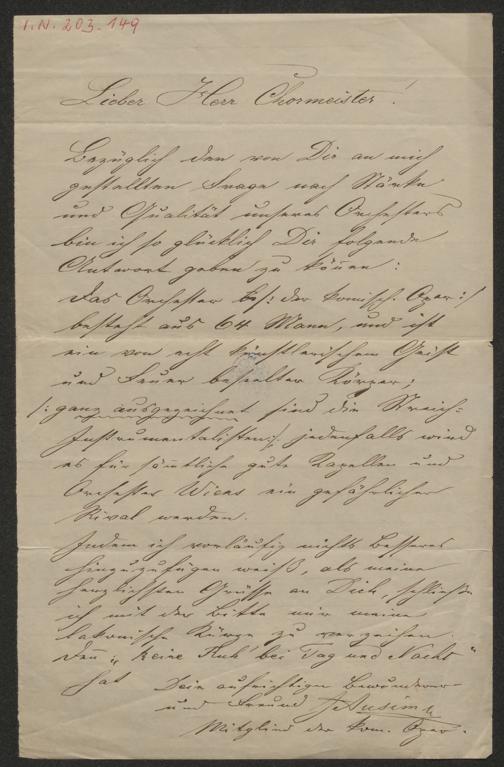 I.N. 203.149
Lieber Herr Chormeister!
Bezüglich der von Dir an mich
gestellten Frage nach Stärke
und Qualität unseres Orchesters
bin ich so glücklich Dir folgende
Antwort geben zu können:
Das Orchester /: der komisch. Oper :/
besteht aus 64 Mann, und ist
ein von echt künstlerischem Geist
und Feuer beseelter Körper;
/: ganz ausgezeichnet sind die Streich-
Instrumentalisten :/ jedenfalls wird
es für sämtliche gute Kapellen und
Orchester Wiens ein gefährlicher
Rival werden.
Indem ich vorläufig nichts Besseres
hinzuzufügen weiß, als meine
herzlichsten Grüße an Dich, schließe
ich mit der Bitte mir meine
lakonische Kürze zu verzeihen.
Denn „keine Ruh' bei Tag und Nacht"
hat Dein aufrichtiger Bewunderer
und Freund
Mitglied der kom. Oper.